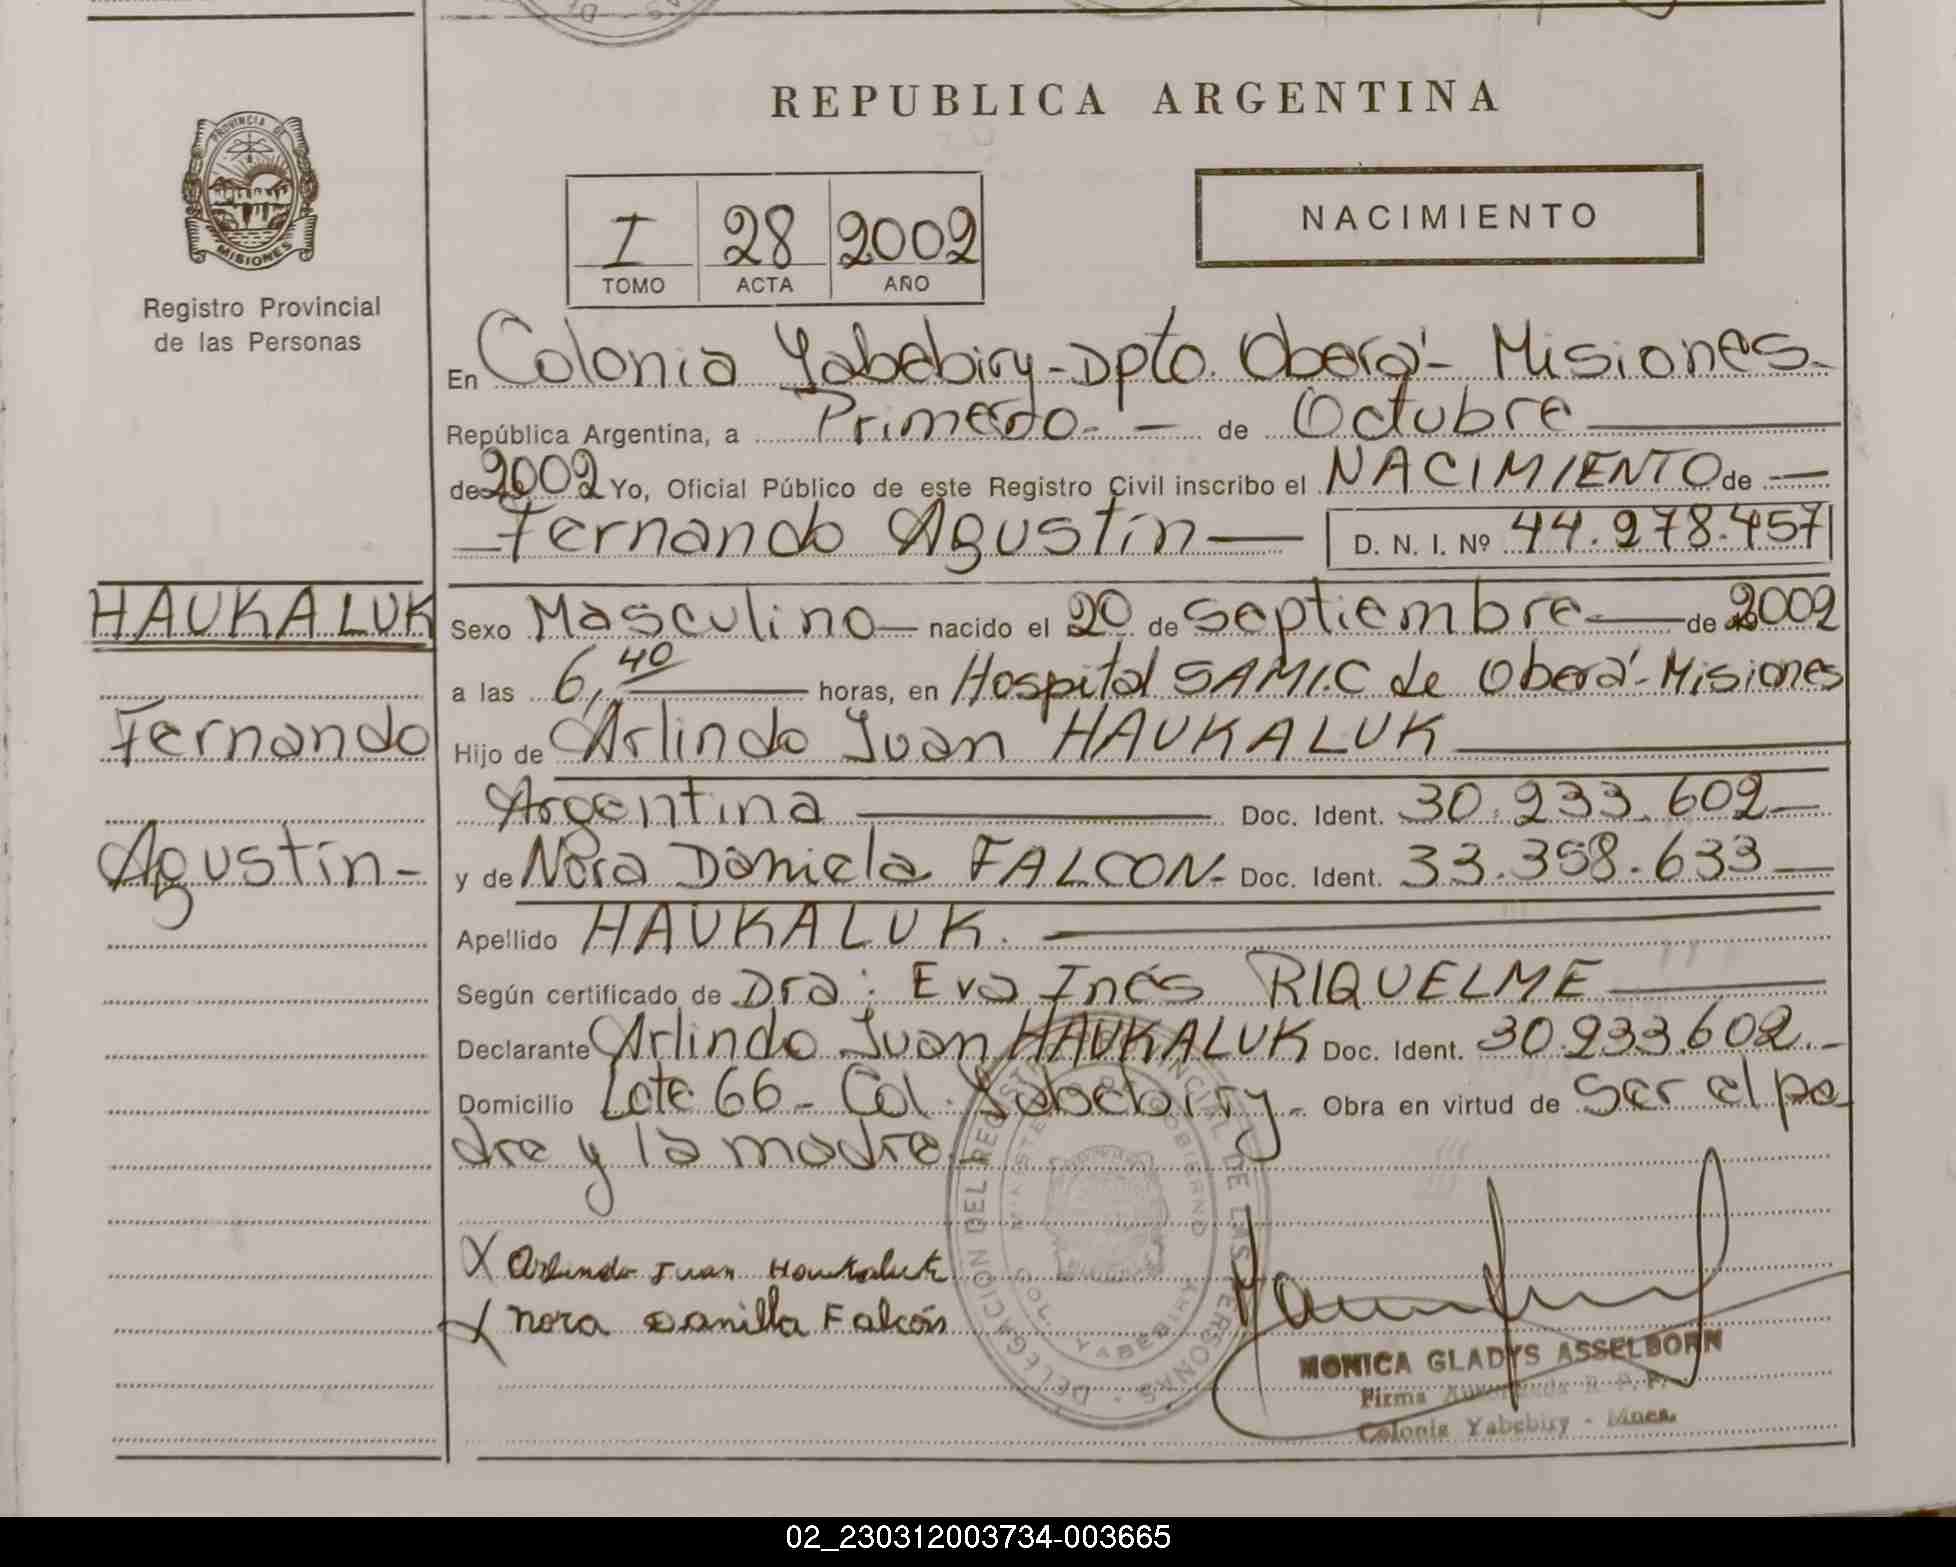 REPUBLICA ARGENTINA
PROVINCIA DE
MISIONES
Registro Provincial
de las Personas
I 28 2002
TOMO ACTA AÑO
NACIMIENTO
En Colonia Yabebiry - Dpto. Oberá - Misiones -
República Argentina, a Primero - - de Octubre
de 2002 Yo, Oficial Público de este Registro Civil inscribo el NACIMIENTO de
Fernando Agustín D. N. I. Nº 44.278.457
HAUKALUK
Fernando
Agustín -
Sexo Masculino nacido el 20 de septiembre de 2002
a las 6,40 horas, en Hospital SAMIC de Oberá - Misiones
Hijo de Arlindo Juan HAUKALUK
Argentina Doc. Ident. 30.233.602
y de Nora Daniela FALCON - Doc. Ident. 33.358.633
Apellido HAUKALUK.
Según certificado de Dra: Eva Inés RIQUELME
Declarante Arlindo Juan HAUKALUK Doc. Ident. 30.233.602.-
Domicilio Lote 66 - Col. Yabebiry - Obra en virtud de ser el pa
dre y la madre
X Arlindo Juan Haukaluk
X Nora Danilla Falcón
DELEGACION DEL REGISTRO PROVINCIAL DE LAS PERSONAS
MINISTERIO DE GOBIERNO
COL. YABEBIRY
MONICA GLADYS ASSELBORN
Firma Autorizada R. P. P.
Colonia Yabebiry - Mnes.
02_230312003734-003665